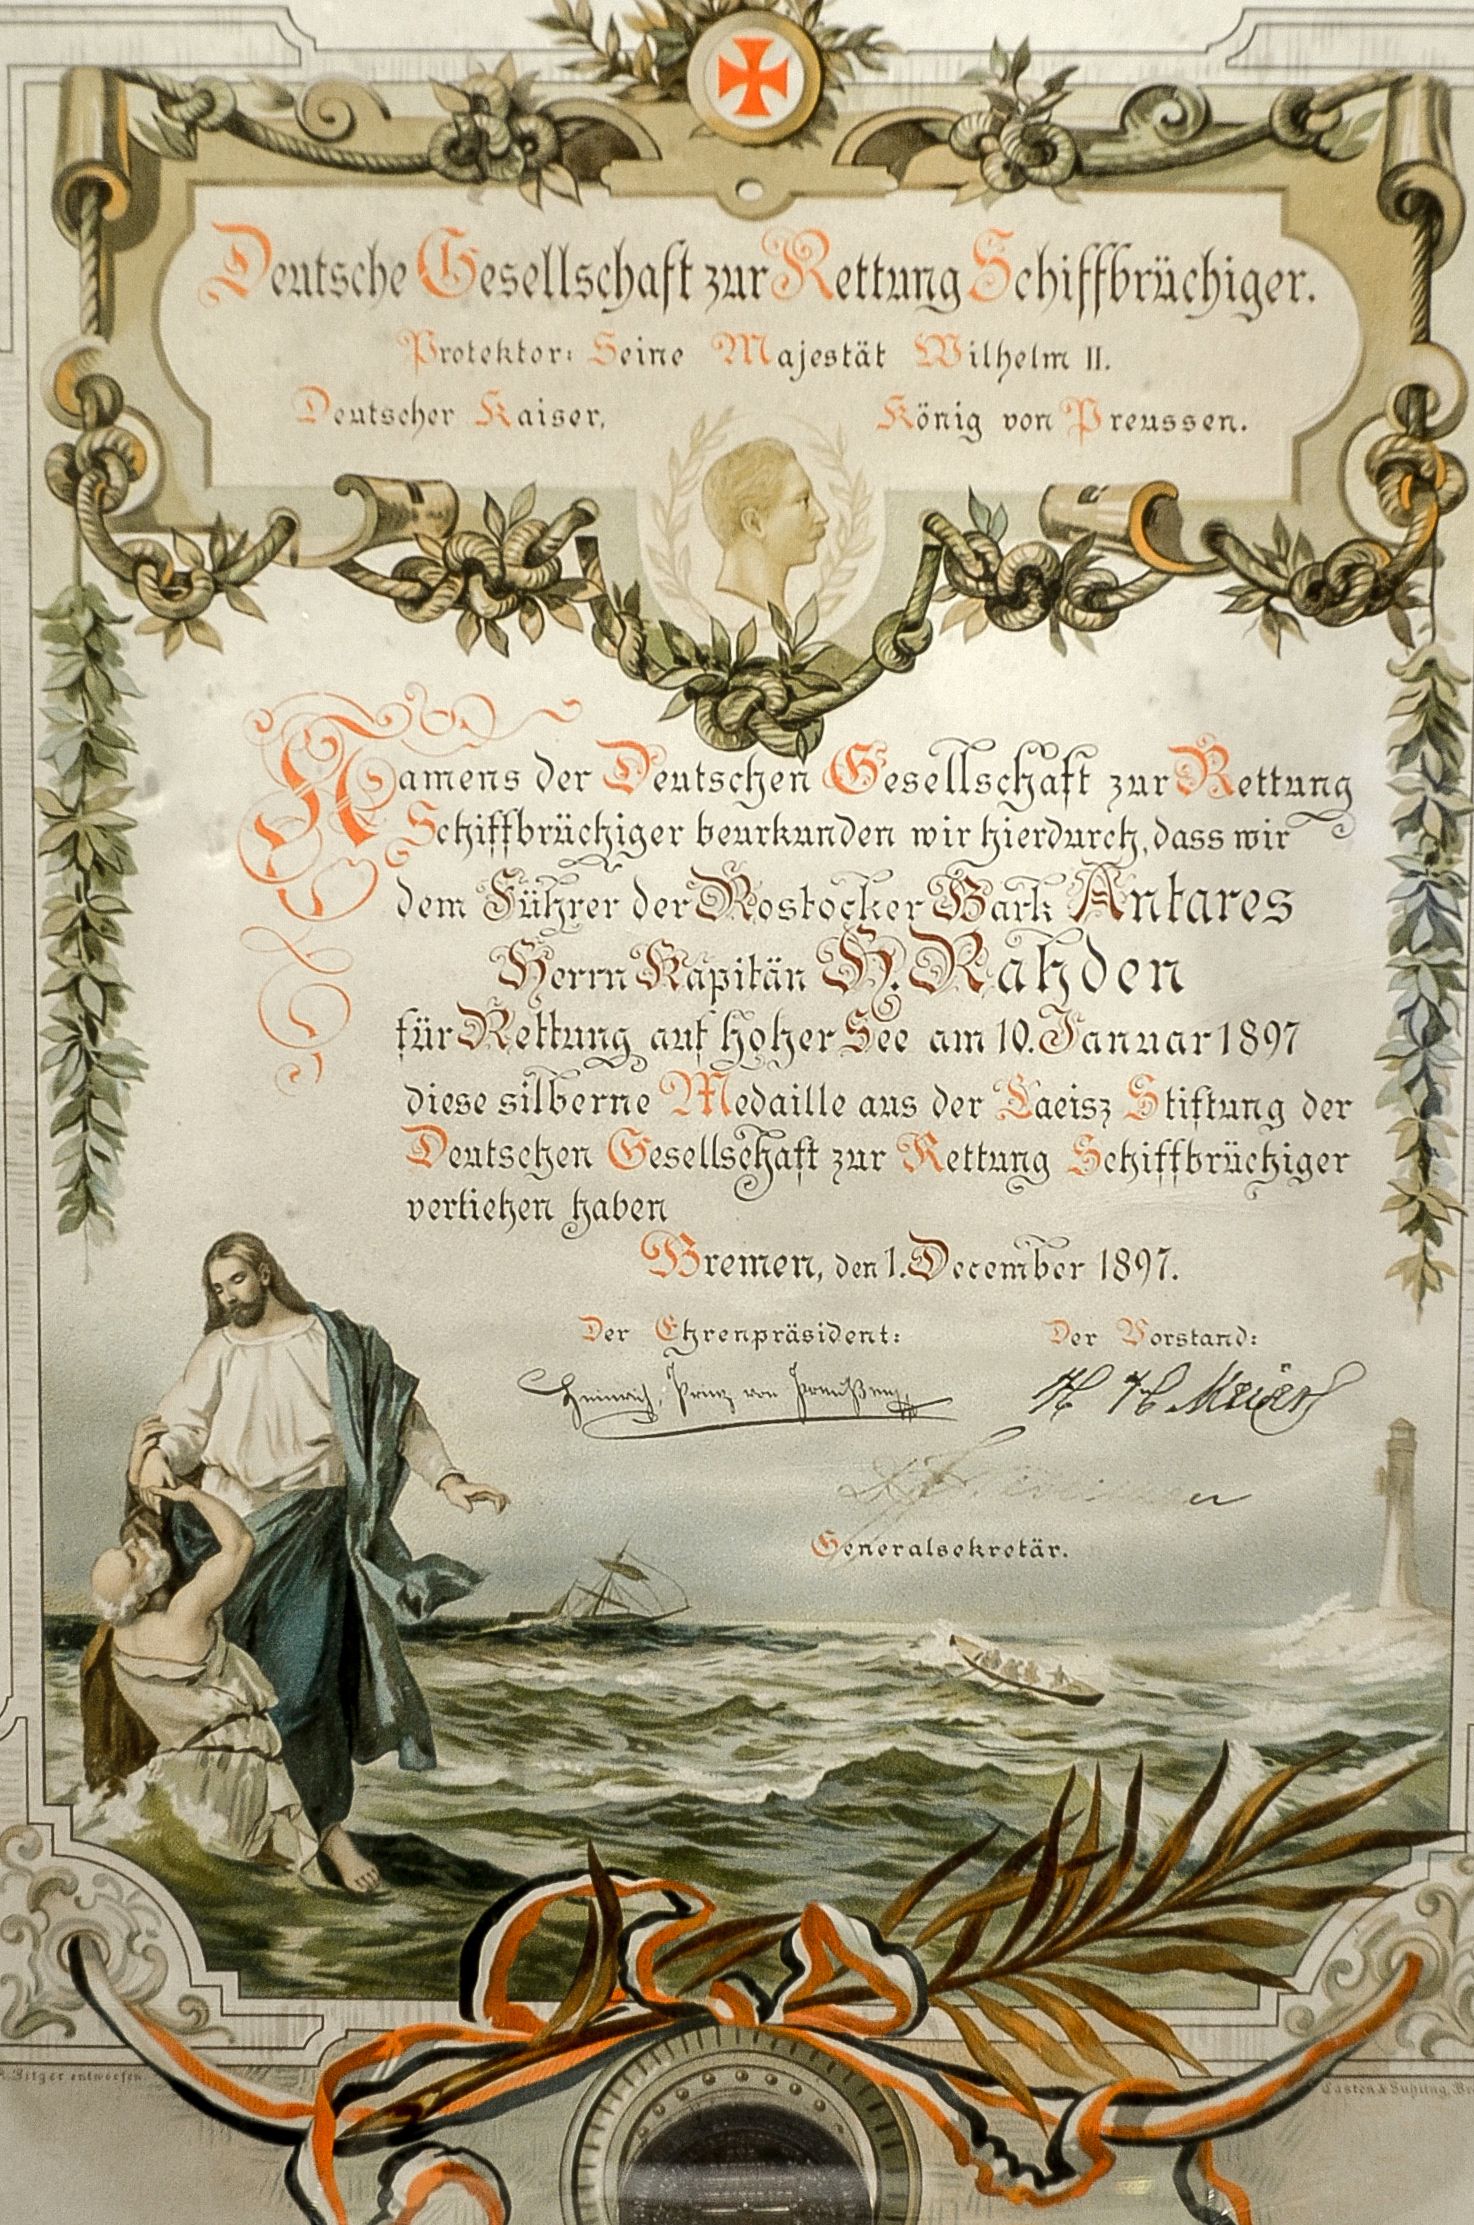 Deutsche Gesellschaft zur Rettung Schiffbrüchiger.
Protektor: Seine Majestät Wilhelm II.
Deutscher Kaiser, König von Preussen.
Namens der Deutschen Gesellschaft zur Rettung
Schiffbrüchiger beurkunden wir hierdurch, dass wir
dem Führer der Rostocker Bark Antares
Herrn Kapitän H. Rahden
für Rettung auf hoher See am 10. Januar 1897
diese silberne Medaille aus der Laeisz Stiftung der
Deutschen Gesellschaft zur Rettung Schiffbrüchiger
verliehen haben
Bremen, den 1. December 1897.
Der Ehrenpräsident: Der Vorstand:
Heinrich, Prinz von Preußen H H Meier
Generalsekretär.
Fitger entworfen